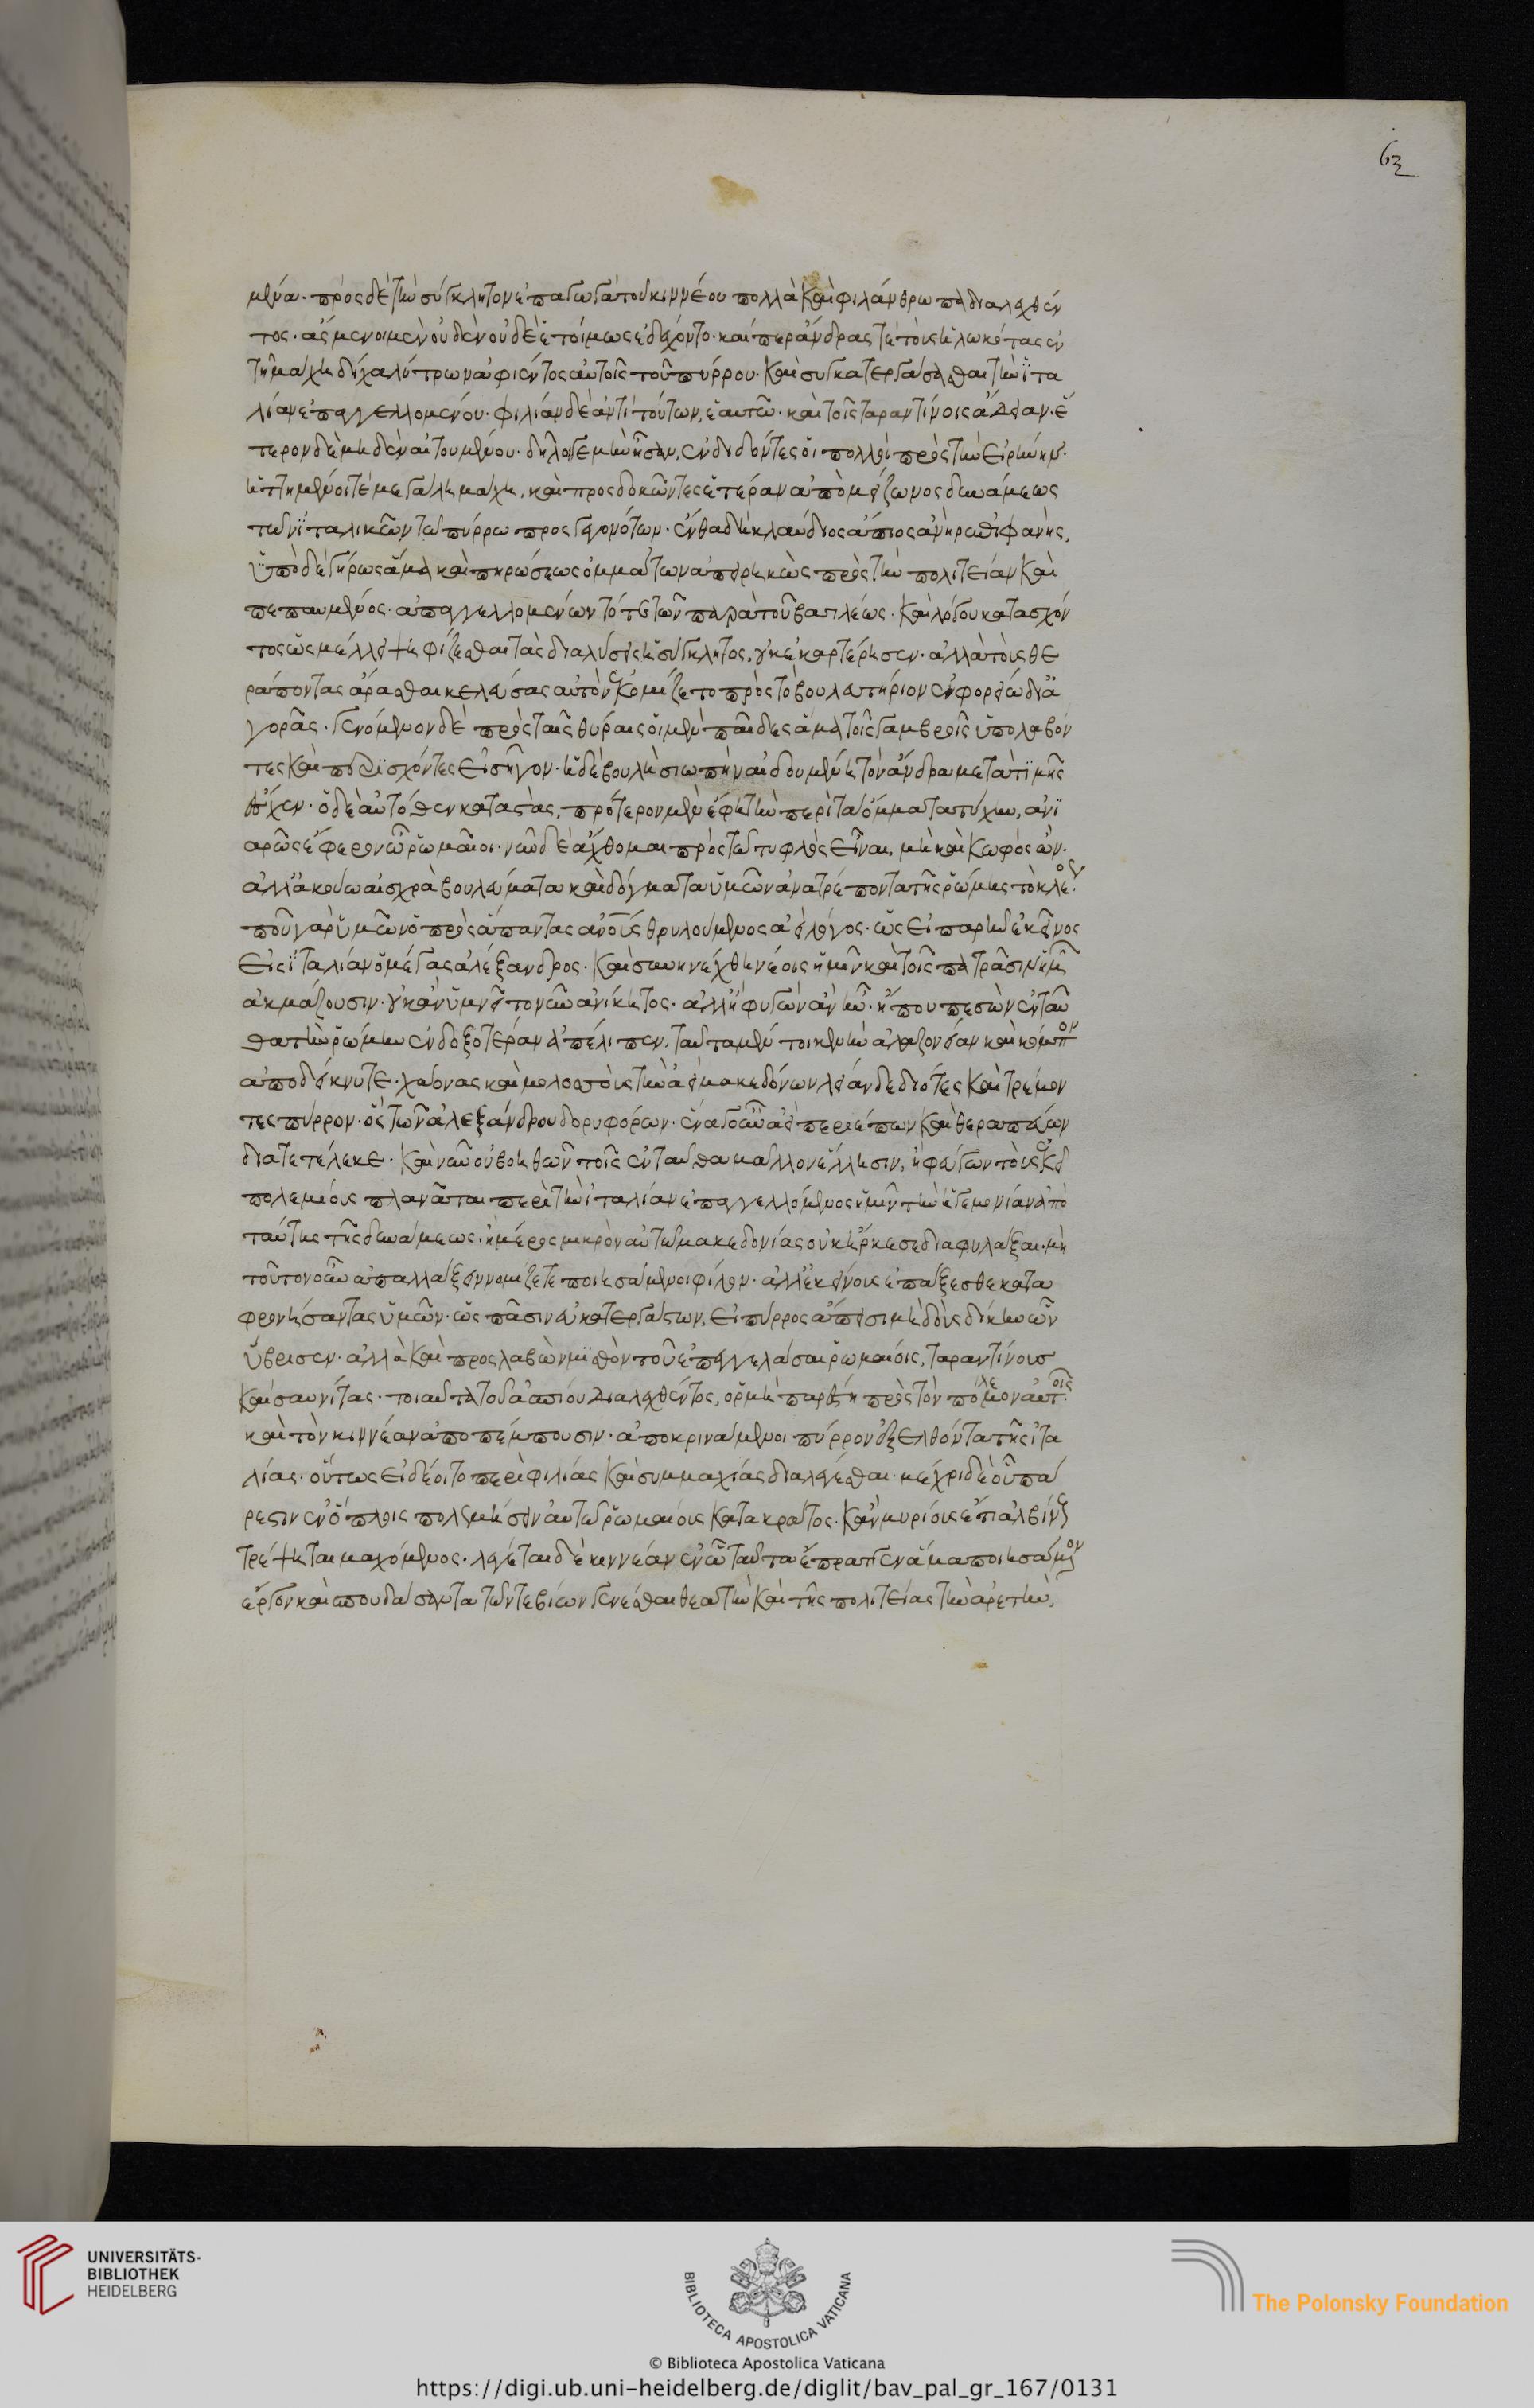 63
μένα. πρὸς δὲ τὴν σύγκλητον ἐπαγωγὰ τοῦ κιννέου πολλὰ καὶ φιλάνθρωπα διαλεχθέν
τος. ἀσμένοι μὲν οὐδὲν οὐδὲ ἑτοίμως ἐδέχοντο. καίπερ ἄνδρας τὲ τοὺς ἡλωκότας ἐν
τῆ μάχη δίχα λύτρων ἀφιέντος αὐτοῖς τοῦ πύρρου. καὶ συγκατεργάσασθαι τὴν ἰτα
λίαν ἐπαγγελλομένου. φιλίαν δὲ ἀντὶ τούτων, ἑαυτῶ. καὶ τοῖς ταραντίνοις ἄδειαν. ἕ
τερον δὲ μηδὲν αἰτουμένου. δῆλοι δὲ μὴν ἦσαν, ἐνδιδόντες οἱ πολλοὶ πρὸς τὴν εἰρήνην.
ἡττημένοι τὲ μεγάλη μάχη, καὶ προσδοκῶντες ἑτέραν ἀπὸ μείζωνος δυνάμεως
τῶν ἰταλικῶν τῶ πύρρω προσγεγονότων. ἔνθα δὴ κλαύδιος ἄππιος ἀνὴρ ἐπιφανὴς,
ὑπὸ δὲ γήρως ἅμα καὶ πηρώσεως ὀμμάτων ἀπειρηκὼς πρὸς τὴν πολιτείαν καὶ
πεπαυμένος. ἀπαγγελλομένων τότε τῶν παρὰ τοῦ βασιλέως. καὶ λόγου κατασχόν
τος ὡς μέλλει ψηφίζεσθαι τὰς διαλύσεις ἡ σύγκλητος, οὐκ ἐκαρτέρησεν. ἀλλὰ τοὺς θε
ράποντας ἄρασθαι κελεύσας αὐτὸν ἐκομίζετο πρὸς τὸ βουλευτήριον ἐν φορείω δι ἀ
γορᾶς. γενόμενον δὲ πρὸς ταῖς θύραις οἱ μὲν παῖδες ἅμα τοῖς γαμβροῖς ὑπολαβόν
τες καὶ περιϊσχόντες εἰσῆγον. ἡ δὲ βουλὴ σιωπὴν αἰδουμένη τὸν ἄνδρα μετὰ τιμῆς
ἔσχεν. ὁ δὲ αὐτόθεν καταστὰς, πρότερον μὲν ἔφη τὴν περὶ τὰ ὄμματα τύχην, ἀνι
αρῶς ἔφερον ὦ ῥωμαῖοι. νῦν δὲ ἄχθομαι πρὸς τῶ τυφλὸς εἶναι, μὴ καὶ κωφὸς ὤν.
ἀλλ' ἀκούω αἰσχρὰ βουλεύματα καὶ δόγματα ὑμῶν ἀνατρέποντα τῆς ῥώμης τὸ κλέος.
ποῦ γὰρ ὑμῶν ὁ πρὸς ἅπαντας ἀνους θρυλούμενος ἀεὶ λόγος. ὡς εἰ παρῆν ἐκεῖνος
εἰς ἰταλίαν ὁ μέγας ἀλέξανδρος. καὶ συνηνέχθη νέοις ἡμῖν καὶ τοῖς πατράσιν ἡμῶν
ἀκμάζουσιν. οὐκ ἂν ὑμνεῖτο νῦν ἀνίκητος. ἀλλ' ἢ φυγὼν ἂν ἦν. ἤ που πεσὼν ἐνταῦ
θα τὴν ῥώμην ἐνδοξοτέραν ἀπέλιπεν. ταῦτα μέν τοι κενὴν ἀλαζονείαν καὶ κόμπον
ἀποδείκνυτε. χάονας καὶ μολοσσοὺς τὴν ἀεὶ μακεδόνων λείαν δεδιότες καὶ τρέμον
τες πύρρον. ὃς τῶν ἀλεξάνδρου δορυφόρων. ἕνα γοῦν ἀεὶ περιέπων καὶ θεραπεύων
διατετέλεκε. καὶ νῦν οὐ βοηθῶν τοῖς ἐνταῦθα μᾶλλον ἕλλησιν, ἢ φεύγων τοὺς ἐκεῖ
πολεμίους πλανᾶται περὶ τὴν ἰταλίαν ἐπαγγελλόμενος ἡμῖν τὴν ἡγεμονίαν ἀπὸ
ταύτης τῆς δυνάμεως. ἣ μέρος μικρὸν αὐτῶ μακεδονίας οὐκ ἤρκεσε διαφυλάξαι. μὴ
τοῦτον οὖν ἀπαλλάξειν νομίζετε ποιησάμενοι φίλον. ἀλλ' ἐκείνους ἐπάξεσθε κατα
φρονήσαντας ὑμῶν. ὡς πᾶσιν εὐκατεργάστων, εἰ πύρρος ἄπεισι μὴ δοὺς δίκην ὧν
ὕβρισεν. ἀλλὰ καὶ προσλαβὼν μισθὸν τοῦ ἐπεγγελάσαι ῥωμαίοις, ταραντίνους
καὶ σαυνίτας. τοιαῦτα τοῦ ἀππίου διαλεχθέντος, ὁρμὴ παρέστη πρὸς τὸν πόλεμον αὐτοῖς.
καὶ τὸν κιννέαν ἀποπέμπουσιν. ἀποκρινάμενοι πύρρον ἐξελθόντα τῆς ἰτα
λίας. οὕτως εἰ δέοιτο περὶ φιλίας καὶ συμμαχίας διαλέγεσθαι. μέχρι δὲ οὗ πά
ρεστιν ἐν ὅπλοις πολεμήσειν αὐτῶ ῥωμαίους κατακράτος. κἂν μυρίους ἔτι λαιβίνους
τρέψηται μαχόμενος. λέγεται δὲ κιννέαν ἐν ὧ ταῦτα ἐπράττεν ἅμα ποιησάμενον
ἔργον καὶ σπουδάσαντα τῶν τε βίων γενέσθαι θεατὴν καὶ τῆς πολιτείας τὴν ἀρετὴν,
UNIVERSITÄTS-
BIBLIOTHEK
HEIDELBERG
BIBLIOTECA APOSTOLICA VATICANA
The Polonsky Foundation
© Biblioteca Apostolica Vaticana
https://digi.ub.uni-heidelberg.de/diglit/bav_pal_gr_167/0131